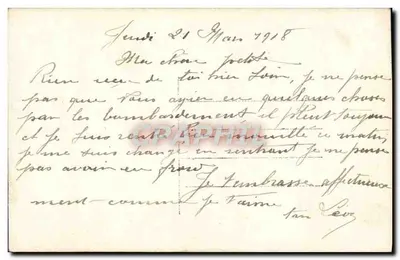 Jeudi 21 Mars 1918
Ma chère petite
Rien reçu de toi hier soir, je ne pense
pas que vous ayiez eu quelques choses
par les bombardement il pleut toujours
et je suis mouillé ce matin,
je me suis changé en rentrant je ne pense
pas avoir eu froid
Je t'embrasse affectueuse
ment comme je t'aime
ton